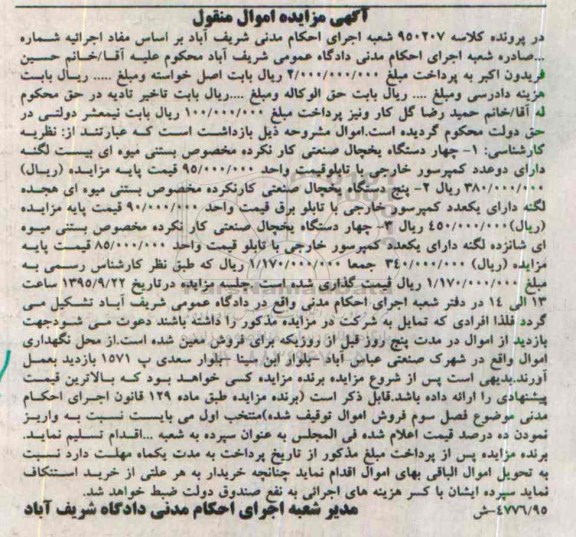 آگهی مزایده اموال منقول
در پرونده کلاسه ۹۵۰۲۰۷ شعبه اجرای احکام مدنی شریف آباد بر اساس مفاد اجرائیه شماره
...صادره شعبه اجرای احکام مدنی دادگاه عمومی شریف آباد محکوم علیه آقا/خانم حسین
فریدون اکبر به پرداخت مبلغ ۲/۰۰۰/۰۰۰/۰۰۰ ریال بابت اصل خواسته ومبلغ ..... ریال بابت
هزینه دادرسی ومبلغ .... ریال بابت حق الوکاله ومبلغ ....ریال بابت تاخیر تادیه در حق محکوم
له آقا/خانم حمید رضا گل کار ونیز پرداخت مبلغ ۱۰۰/۰۰۰/۰۰۰ ریال بابت نیمعشر دولتی در
حق دولت محکوم گردیده است.اموال مشروحه ذیل بازداشت است که عبارتند از: نظریه
کارشناسی: ۱- چهار دستگاه یخچال صنعتی کار نکرده مخصوص بستنی میوه ای بیست لگنه
دارای دوعدد کمپرسور خارجی با تابلوقیمت واحد ۹۵/۰۰۰/۰۰۰ قیمت پایه مزایده (ریال)
۳۸۰/۰۰۰/۰۰۰ ریال ۲- پنج دستگاه یخچال صنعتی کارنکرده مخصوص بستنی میوه ای هجده
لگنه دارای یکعدد کمپرسور خارجی با تابلو برق قیمت واحد ۹۰/۰۰۰/۰۰۰ قیمت پایه مزایده
(ریال)۴۵۰/۰۰۰/۰۰۰ ریال ۳- چهار دستگاه یخچال صنعتی کار نکرده مخصوص بستنی میوه
ای شانزده لگنه دارای یکعدد کمپرسور خارجی با تابلو قیمت واحد ۸۵/۰۰۰/۰۰۰ قیمت پایه
مزایده (ریال) ۳۴۰/۰۰۰/۰۰۰ جمعا ۱/۱۷۰/۰۰۰/۰۰۰ ریال که طبق نظر کارشناس رسمی به
مبلغ ۱/۱۷۰/۰۰۰/۰۰۰ ریال قیمت گذاری شده است .جلسه مزایده درتاریخ ۱۳۹۵/۹/۲۲ ساعت
۱۳ الی ۱۴ در دفتر شعبه اجرای احکام مدنی واقع در دادگاه عمومی شریف آباد تشکیل می
گردد فلذا افرادی که تمایل به شرکت در مزایده مذکور را داشته باشند دعوت می شودجهت
بازدید از اموال در مدت پنج روز قبل از روزیکه برای فروش معین شده است.از محل نگهداری
اموال واقع در شهرک صنعتی عباس آباد -بلوار ابن سینا -بلوار سعدی پ ۱۵۷۱ بازدید بعمل
آورند.بدیهی است پس از شروع مزایده برنده مزایده کسی خواهد بود که بالاترین قیمت
پیشنهادی را ارائه داده باشد.قابل ذکر است (برنده مزایده طبق ماده ۱۲۹ قانون اجرای احکام
مدنی موضوع فصل سوم فروش اموال توقیف شده)منتخب اول می بایست نسبت به واریز
نمودن ده درصد قیمت اعلام شده فی المجلس به عنوان سپرده به شعبه ...اقدام تسلیم نماید.
برنده مزایده پس از پرداخت مبلغ مذکور از تاریخ پرداخت به مدت یکماه مهلت دارد نسبت
به تحویل اموال الباقی بهای اموال اقدام نماید چنانچه خریدار به هر علتی از خرید استنکاف
نماید سپرده ایشان با کسر هزینه های اجرائی به نفع صندوق دولت ضبط خواهد شد.
۴۷۷۶/۹۵-ش مدیر شعبه اجرای احکام مدنی دادگاه شریف آباد